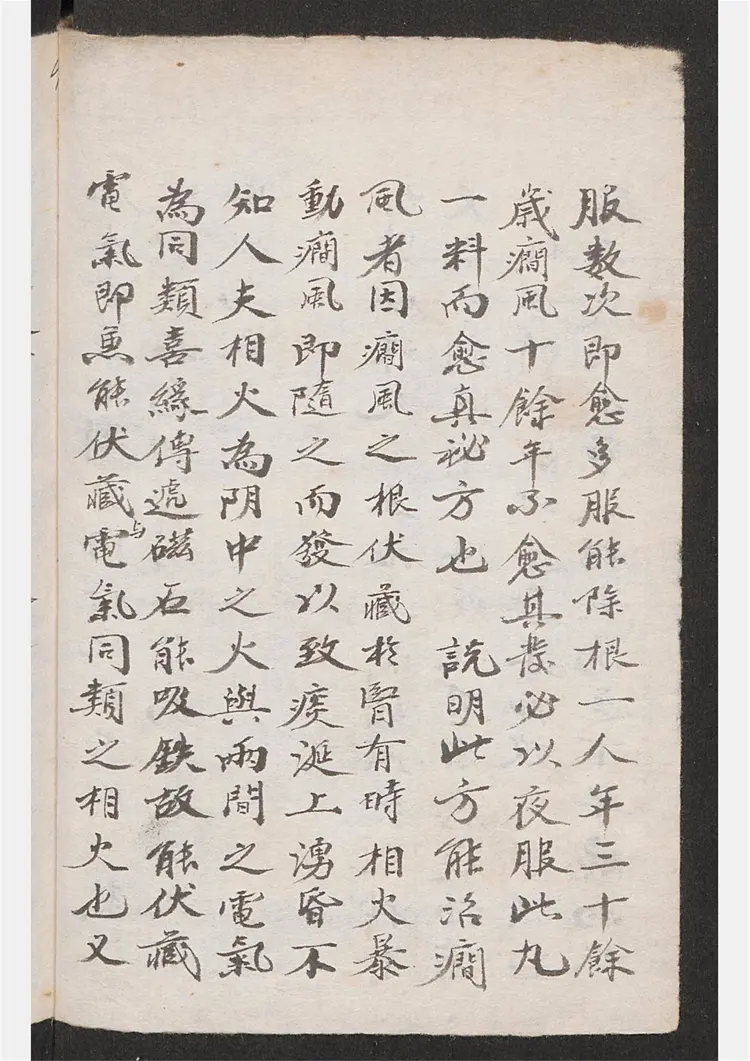 服数次即愈多服能除根一人年三十餘
歲癇風十餘年不愈其發必以夜服此丸
一料而愈真祕方也　說明此方能治癇
風者因癇風之根伏藏於腎有時相火暴
動癇風即隨之而發以致痰涎上湧昏不
知人夫相火為阴中之火與兩間之電氣
為同類喜緣傳遞磁石能吸鉄故能伏藏
電氣即兼能伏藏與電氣同類之相火也又